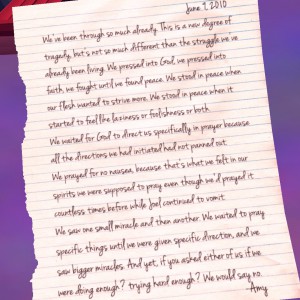 June 1, 2010
We've been through so much already. This is a new degree of
tragedy, but's not so much different than the struggle we've
already been living. We pressed into God, we pressed into
faith, we fought until we found peace. We stood in peace when
our flesh wanted to strive more. We stood in peace when it
started to feel like laziness or foolishness or both.
We waited for God to direct us specifically in prayer because
all the directions we had initiated had not panned out.
We prayed for no nausea, because that's what we felt in our
spirits we were supposed to pray even though we'd prayed it
countless times before while Joel continued to vomit.
We saw one small miracle and then another. We waited to pray
specific things until we were given specific direction, and we
saw bigger miracles. And yet, if you asked either of us if we
were doing enough? trying hard enough? We would say no.
-Amy